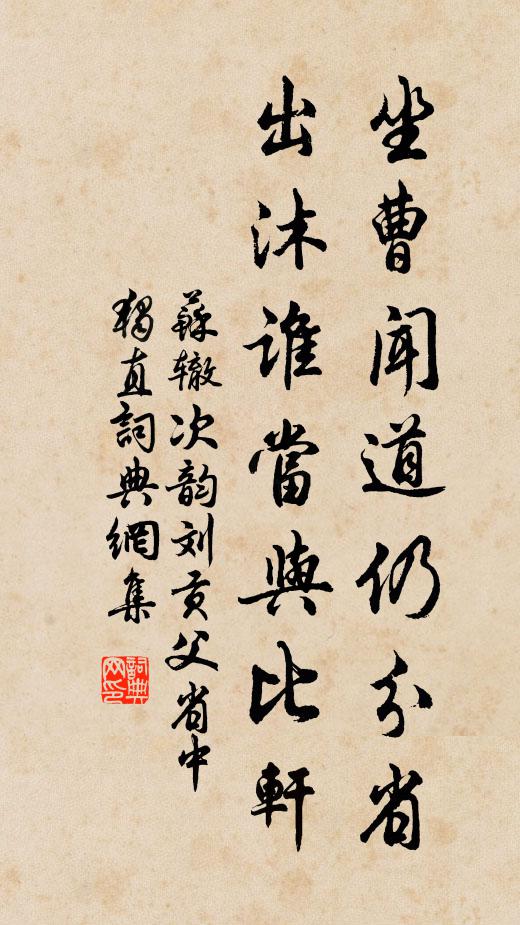 坐曹聞道仍分省
出沐誰當與比軒
蘇辙次韵刘贡父省中
獨直詞典網集
詞典网印